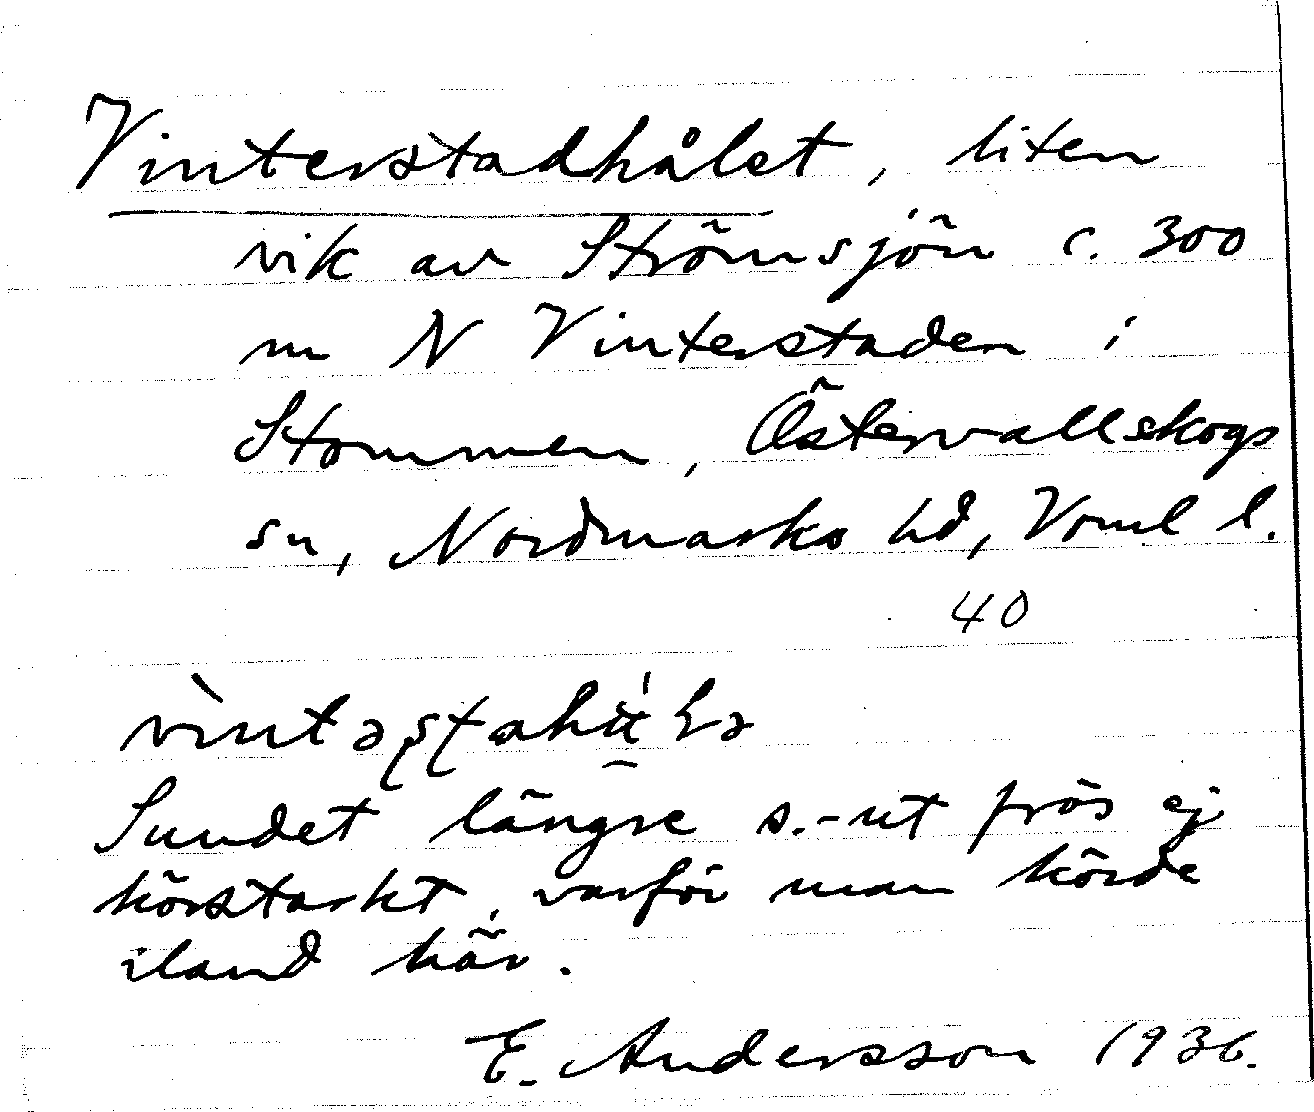 Vinterstadhålet, liten
vik av Strömsjön c. 300
m N Vinterstaden i
Stommen, Östervallskogs
sn, Nordmarks hd, Vrml l.
40
Sundet längre s.-ut frös ej
körstarkt, varför man körde
iland här.
E. Andersson 1936.